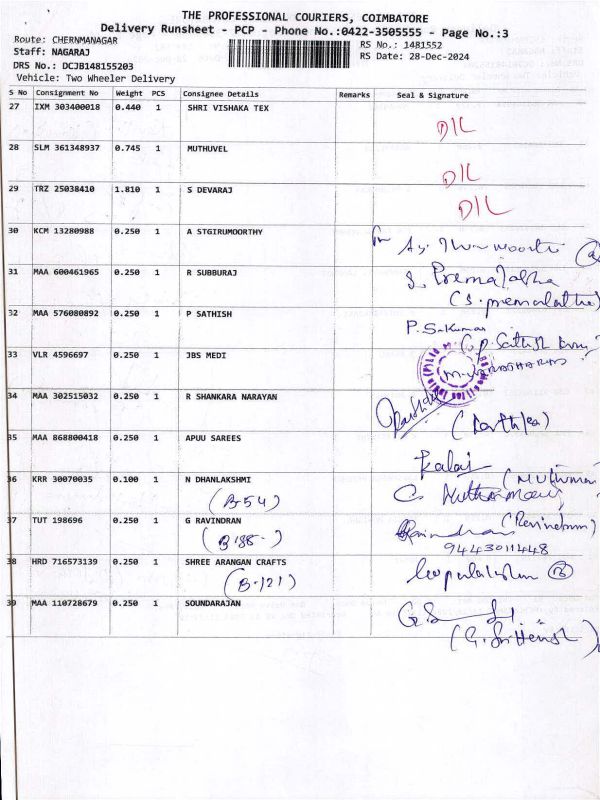 THE PROFESSIONAL COURIERS, COIMBATORE
Delivery Runsheet - PCP - Phone No.:0422-3505555 - Page No.:3
Route: CHERNMANAGAR
Staff: NAGARAJ
RS No.: 1481552
RS Date: 28-Dec-2024
DRS No.: DCJB148155203
Vehicle: Two Wheeler Delivery
S No Consignment No Weight PCS Consignee Details Remarks Seal & Signature
27 IXM 303400018 0.440 1 SHRI VISHAKA TEX
D/L
28 SLM 361348937 0.745 1 MUTHUVEL
D/L
29 TRZ 25038410 1.810 1 S DEVARAJ
D/L
30 KCM 13280988 0.250 1 A STGIRUMOORTHY
31 MAA 600461965 0.250 1 R SUBBURAJ
S. Premalatha
(S. premalatha)
32 MAA 576080892 0.250 1 P SATHISH
P. S. Kumar
(P. Sathish Kumar
33 VLR 4596697 0.250 1 JBS MEDI
34 MAA 302515032 0.250 1 R SHANKARA NARAYAN
35 MAA 868800418 0.250 1 APUU SAREES
Kalai
36 KRR 30070035 0.100 1 N DHANLAKSHMI
(B-54)
37 TUT 198696 0.250 1 G RAVINDRAN
(Ravindran)
Ravindran
9443011448
38 HRD 716573139 0.250 1 SHREE ARANGAN CRAFTS
(B-121)
39 MAA 110728679 0.250 1 SOUNDARAJAN